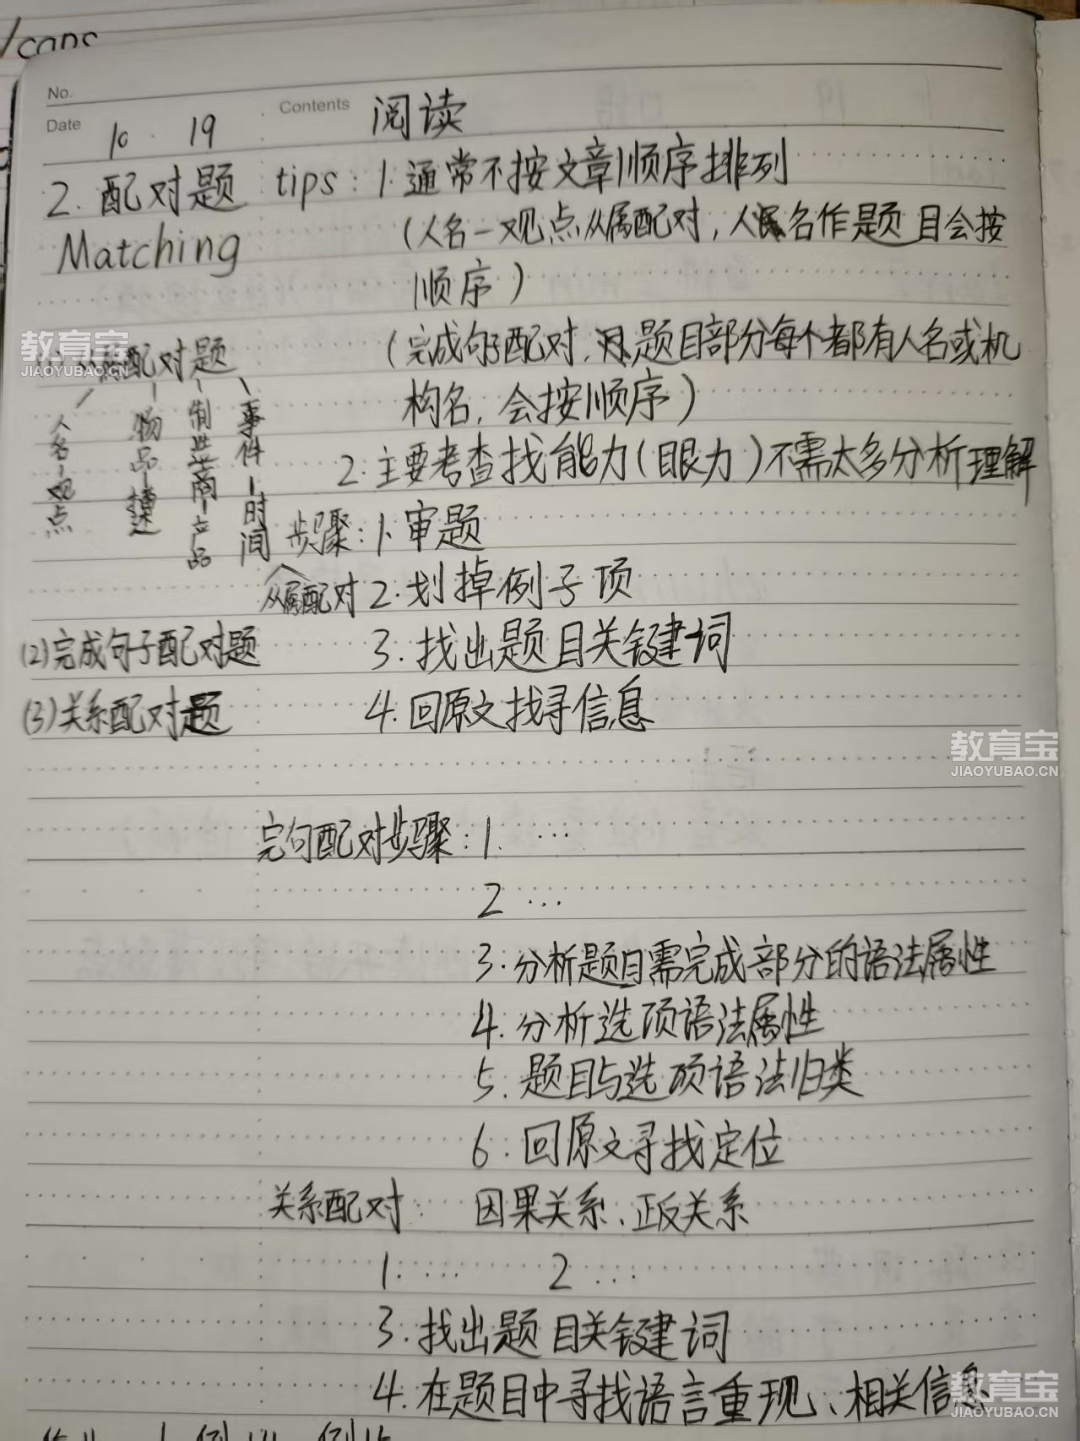 No.
Date 10 · 19 Contents 阅读
2. 配对题 tips: 1. 通常不按文章顺序排列
Matching (人名—观点从属配对, 人名作题目会按
顺序)
配对题 (完成句子配对, 题目部分每个都有人名或机
构名, 会按顺序)
人名-观点
物品-描述
制造商-产品
事件-时间
2. 主要考查找能力(眼力)不需太多分析理解
步骤: 1. 审题
从属配对 2. 划掉例子项
(2)完成句子配对题 3. 找出题目关键词
(3)关系配对题 4. 回原文找寻信息
完句配对步骤: 1. ...
2 ...
3. 分析题目需完成部分的语法属性
4. 分析选项语法属性
5. 题目与选项语法归类
6. 回原文寻找定位
关系配对: 因果关系、正反关系
1. .... 2 ...
3. 找出题目关键词
4. 在题目中寻找语言重现、相关信息
教育宝
JIAOYUBAO.CN
教育宝
JIAOYUBAO.CN
教育宝
JIAOYUBAO.CN